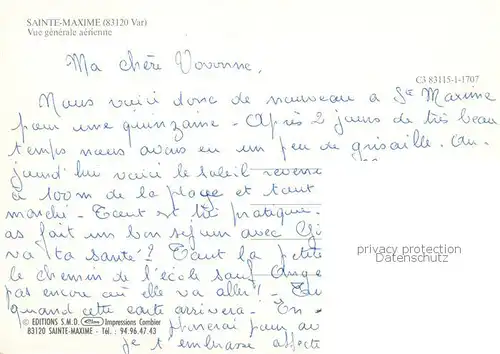 SAINTE-MAXIME (83120 Var)
Vue générale aérienne
Ma chère Vovonne,
C3 83115-1-1707
Nous voici donc de nouveau à Ste Maxime
pour une quinzaine - Après 2 jours de très beau
temps nous avons eu un peu de grisaille. Au
jourd'hui voici le soleil revenu
à 100m de la plage et tout
marché - Tout est très pratique.
as fait un bon séjour avec
va ta santé? Tout la petite
le chemin de l'école sauf Ange
pas encore où elle va aller! - Tu
quand cette carte arrivera. - En
privacy protection
Datenschutz
© EDITIONS S.M.D. Impressions Combier
83120 SAINTE-MAXIME - Tél. : 94.96.47.43
pour au
je t'embrasse affecte